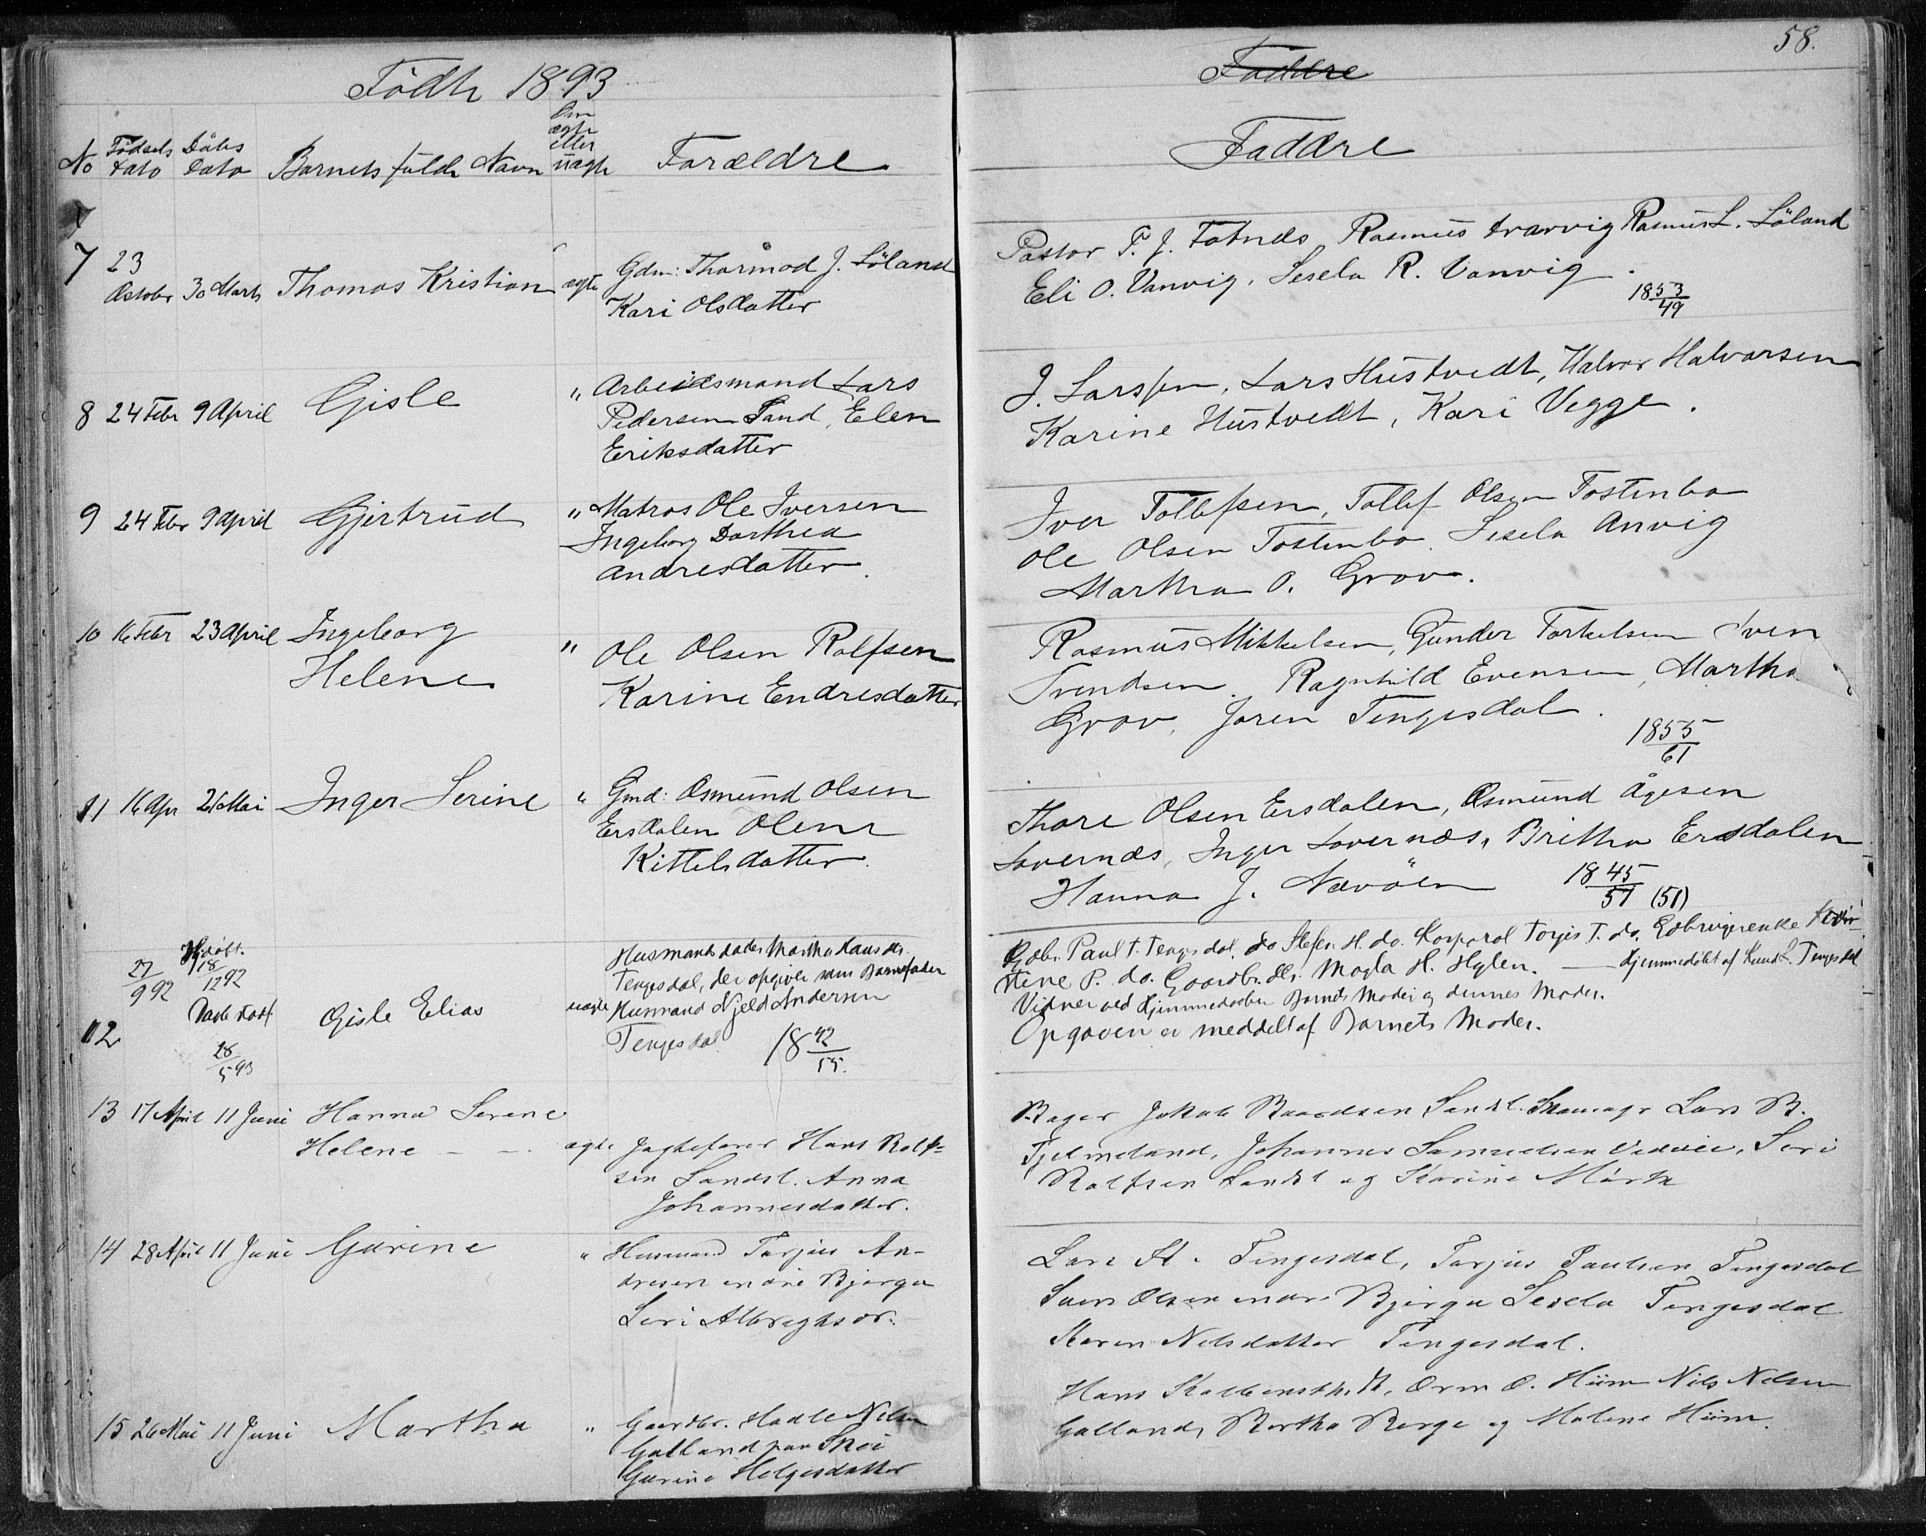 Födte 1893
No Fødsels Dato Dåbs Dato Barnets fulde Navn Om ægte eller uægte Forældre
7 23 October 30 Marts Thomas Kristian ægte Gdm: Thormod J. Løland
Kari Olsdatter
8 24 Febr 9 April Gisle " Arbeidsmand Lars
Pedersen Sand, Elen
Eriksdatter
9 24 Febr 9 April Gjertrud " Matros Ole Iversen
Ingeborg Dorthea
Andresdatter.
10 16 Febr 23 April Ingeborg Helene " Ole Olsen Rolfsen
Karine Endresdatter
11 16 Apr 26 Mai Inger Serine " Gmd: Osmund Olsen
Ersdalen Olene
Kittelsdatter.
12 27/9 92 Hjdöbt. 18/12 92 28/5 93 Gisle Elias uægte Husmands datter Martha Hansdtr
Tengesdal, der opgiver som Barnefader
Husmand Njeld Andersen
Tengesdal 18 42/55.
13 17 April 11 Juni Hanna Serene
Helene - - ægte Jagtefører Hans Rolf=
sen Sandsl. Anna
Johannesdatter.
14 28 April 11 Juni Gurine " Husmand Torjus An-
dresen indre Bjerga
Siri Albregtsdr.
15 26 Mai 11 Juni Martha " Gaardbr. Nilsen
Galland paa
Gurine Helgesdatter
58.
Faddre
Faddre
Pastor T. J. Fotnæs, Rasmus Rasmus L. Löland
Eli O. Vanvig, Sesela R. Vanvig.
1853/49
J. Larssen, Lars Hustvedt, Halvor Halvorsen
Karine Hustvedt, Kari Vegge.
Iver Tollefsen, Tollef Olsen Tostenbo
Ole Olsen Tostenbo. Sesela Anvig
Martha O. Grov.
Rasmus Mikkelsen, Gunder Torkelsen Sven
Svendsen. Ragnhild Evensen, Martha
Grov, Joren Tengesdal.
1855/61
Thore Olsen Ersdalen, Osmund Ågesen
Lovernæs, Inger Lovernæs, Britha Ersdalen
Hanna J. Nævöen 18 45/57 (51)
Gdbr. Paul T. Tengesdal, do Stefen H. do. Korporal Torjus T. do,
tine P. do. Gaardbr. dtr. Magla H. Hylen. — Hjemmedöbt af Knud L. Tengesdal
Vidner ved Hjemmedaaben Barnets Moder og dennes Moder.
Opgaven er meddelt af Barnets Moder.
Bager Jakob Baardsen Sandsl. Skomagr Lars B.
Fjelmeland, Johannes Samuelsen Siri
Rolfsen Sandsl og Karine Mørk
Lars St. Tengesdal, Torjus Paulsen Tengesdal
Sven Olsen indre Bjerga Sesela Tengesdal
Karen Nilsdatter Tengesdal.
Hans Orm O. Hiim Nils Nilsen
Galland, Bertha Berge og Malene Hiim.